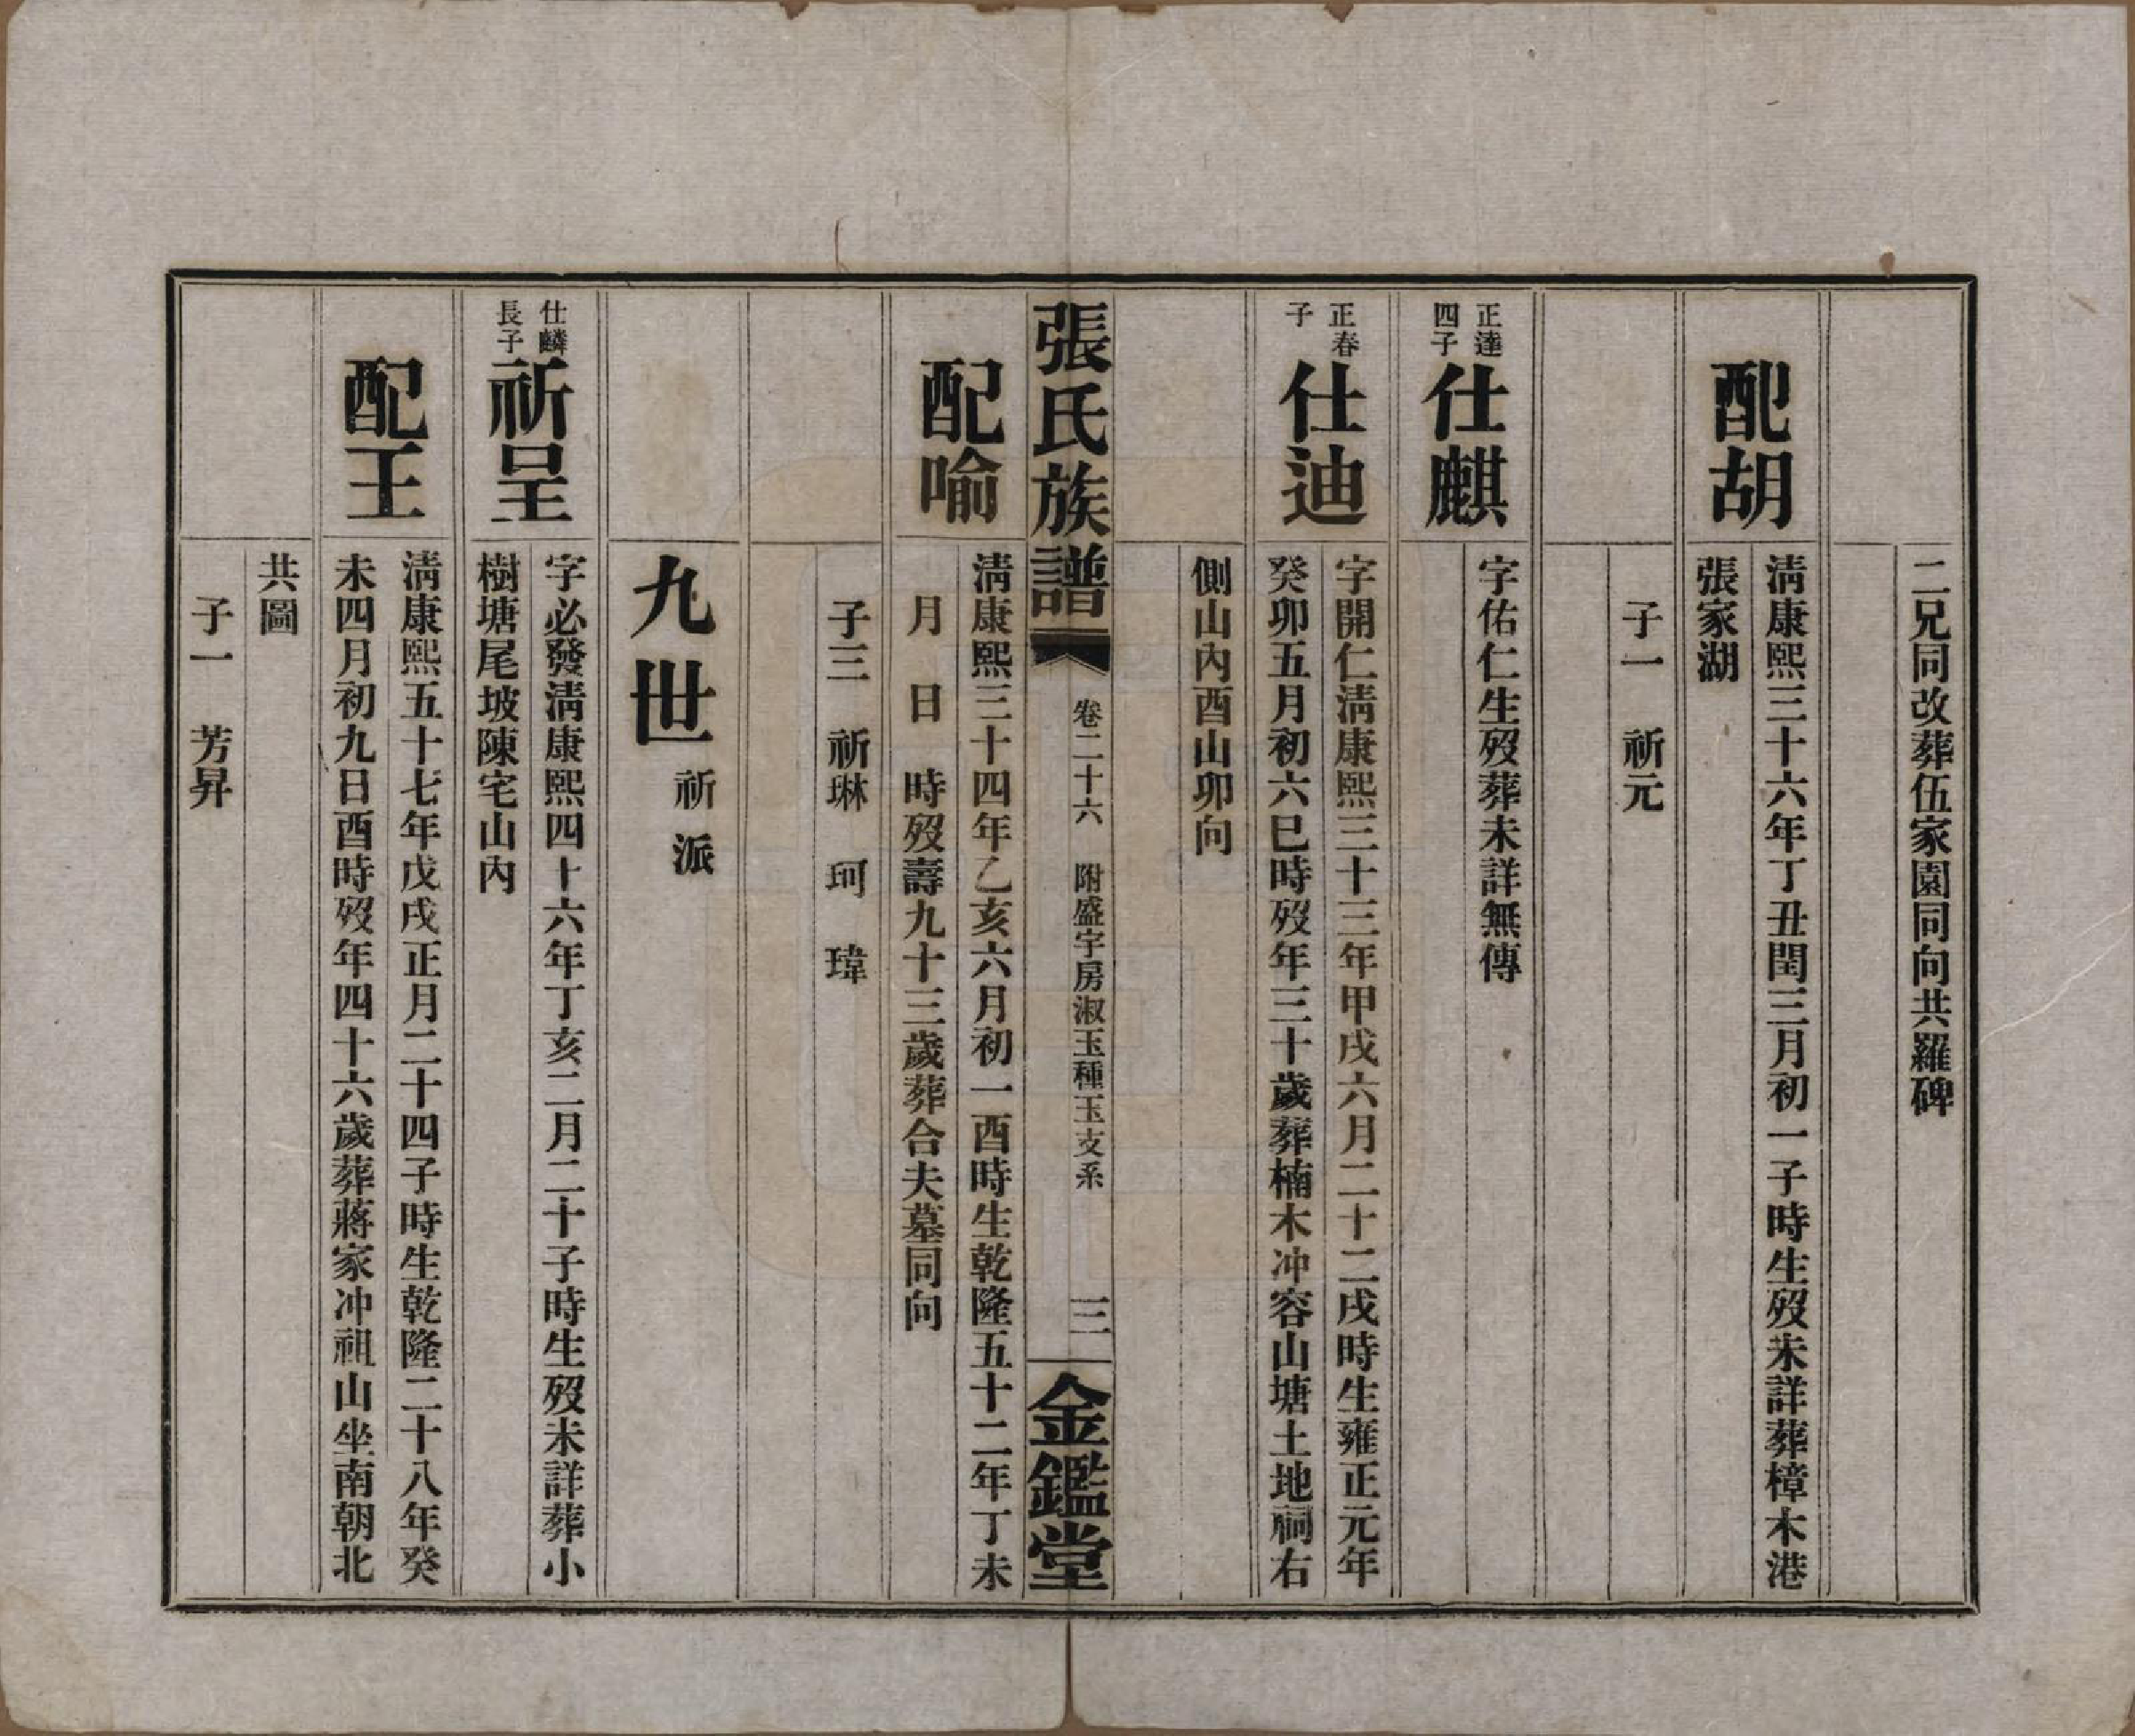 二兄同改葬伍家園同向共羅碑
配胡
清康熙三十六年丁丑閏三月初一子時生歿未詳葬樟木港
張家湖
子一　祈元
正達
四子
仕麒
字佑仁生歿葬未詳無傳
正春
子
仕迪
字開仁清康熙三十三年甲戌六月二十二戌時生雍正元年
癸卯五月初六巳時歿年三十歲葬楠木冲容山塘土地祠右
側山內酉山卯向
張氏族譜
卷二十六　附盛宇房淑玉種玉支系
三
金鑑堂
配喻
清康熙三十四年乙亥六月初一酉時生乾隆五十二年丁未
月　日　時歿壽九十三歲葬合夫墓同向
子三　祈琳　珂　瑋
九世
祈派
仕麟
長子
祈呈
字必發清康熙四十六年丁亥二月二十子時生歿未詳葬小
樹塘尾坡陳宅山內
配王
清康熙五十七年戊戌正月二十四子時生乾隆二十八年癸
未四月初九日酉時歿年四十六歲葬蔣家冲祖山坐南朝北
共圖
子一　芳昇